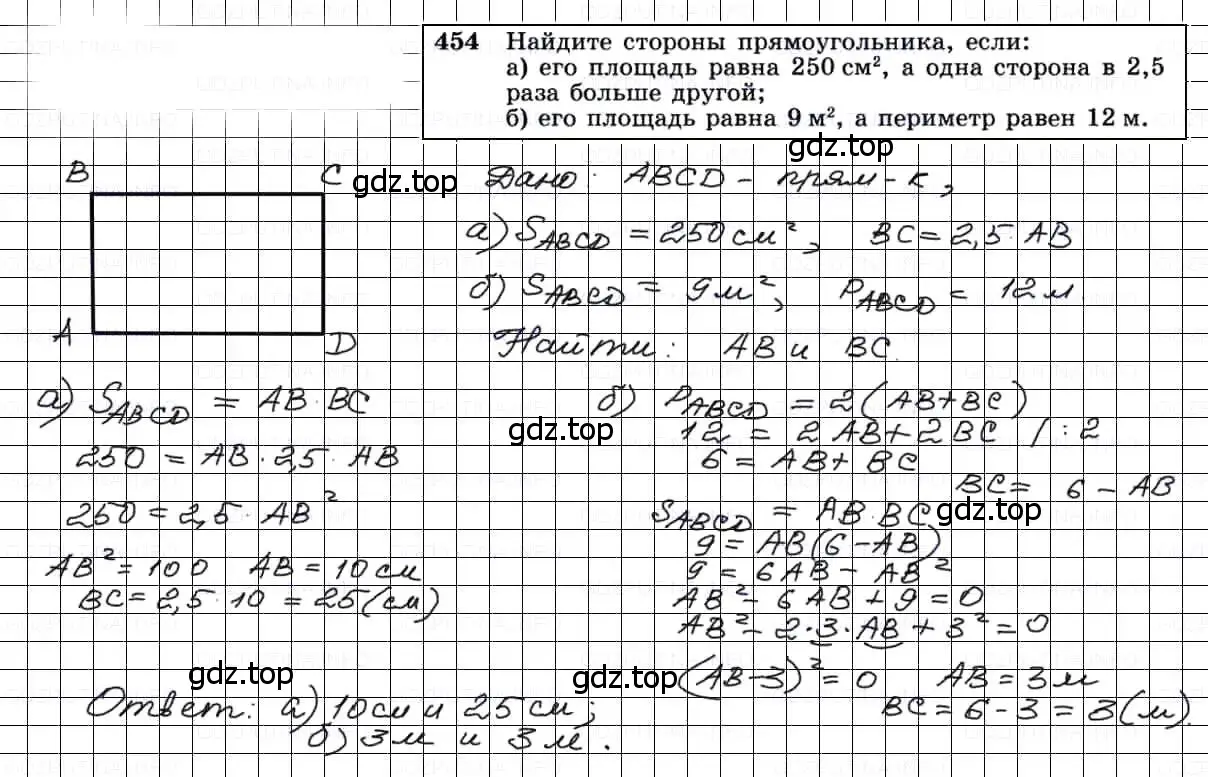 454 Найдите стороны прямоугольника, если:
а) его площадь равна 250 см², а одна сторона в 2,5
раза больше другой;
б) его площадь равна 9 м², а периметр равен 12 м.
gdz.top
B C gdz.top Дано: ABCD - прям-к,
а) S_ABCD = 250 см², BC = 2,5·AB
б) S_ABCD = 9 м², P_ABCD = 12 м
A D Найти: AB и BC.
а) S_ABCD = AB·BC
250 = AB·2,5·AB
250 = 2,5·AB²
AB² = 100 AB = 10 см
BC = 2,5·10 = 25 (см)
gdz.top
б) P_ABCD = 2(AB+BC)
12 = 2AB + 2BC /:2
6 = AB + BC
BC = 6 - AB
S_ABCD = AB·BC gdz.top
9 = AB(6-AB)
9 = 6AB - AB²
AB² - 6AB + 9 = 0
AB² - 2·3·AB + 3² = 0
gdz.top (AB-3)² = 0 AB = 3 м
BC = 6-3 = 3 (м).
gdz.top
Ответ: а) 10 см и 25 см;
б) 3 м и 3 м.